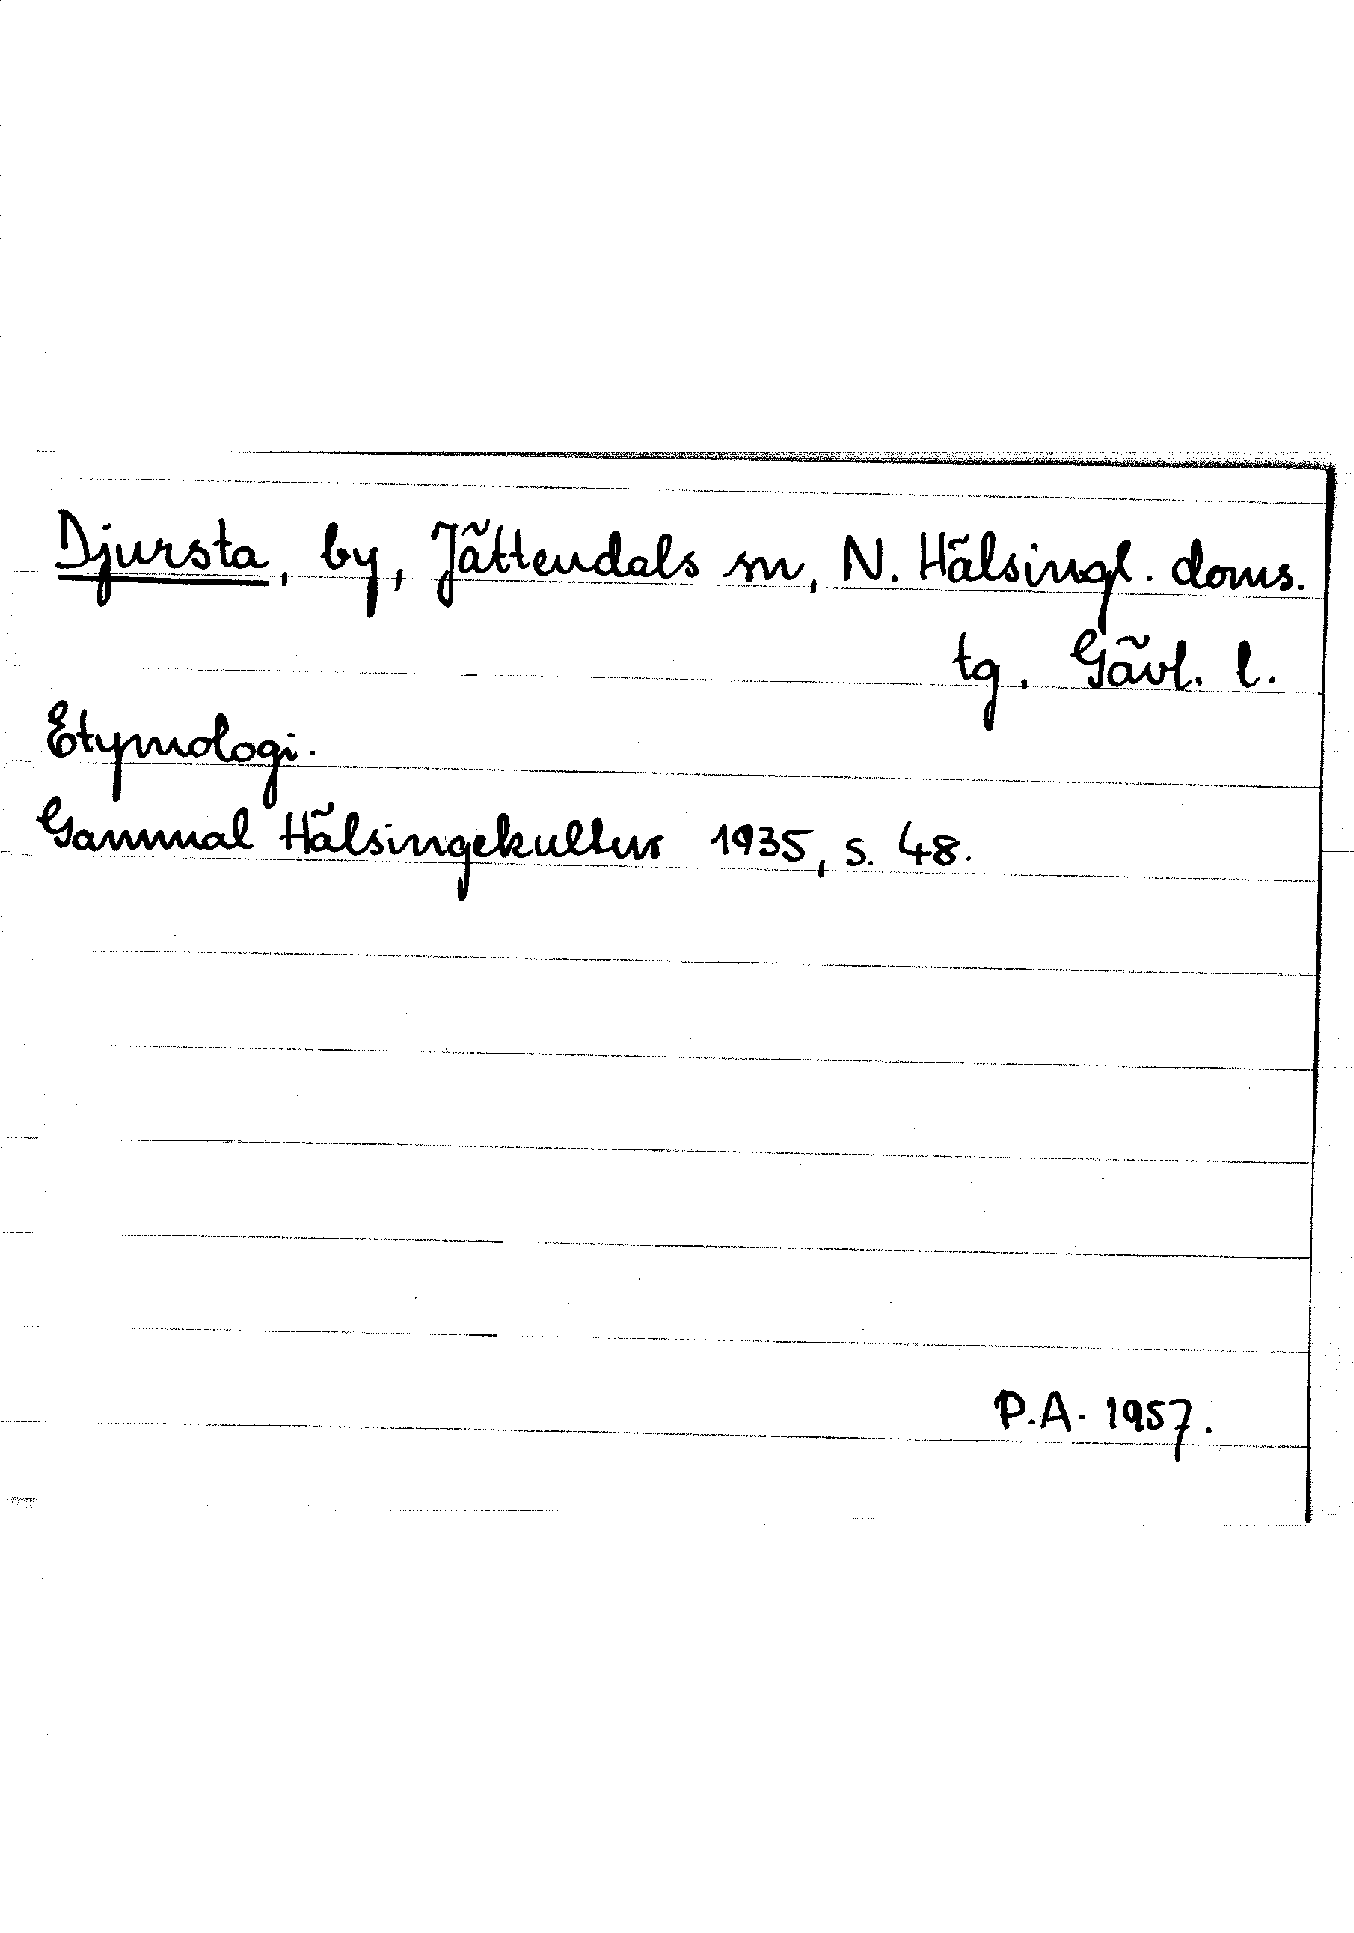 Djursta, by, Jättendals sn, N. Hälsingl. doms.
tg. Gävl. l.
Etymologi.
Gammal Hälsingekultur 1935, s. 48.
P.A. 1957.